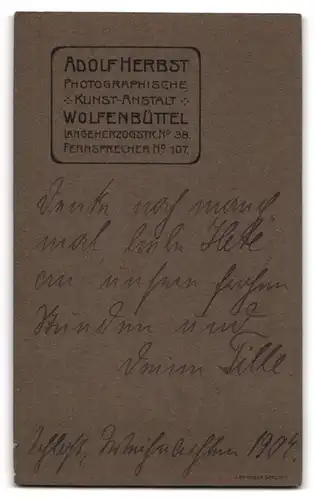 ADOLF HERBST
PHOTOGRAPHISCHE
KUNST-ANSTALT
WOLFENBÜTTEL
LANGEHERZOGSTR. No 38.
FERNSPRECHER No 107.
Denke noch manch
mal liebe
an unsere frohen
Stunden und
Deine Tille.
Weihnachten 1904.